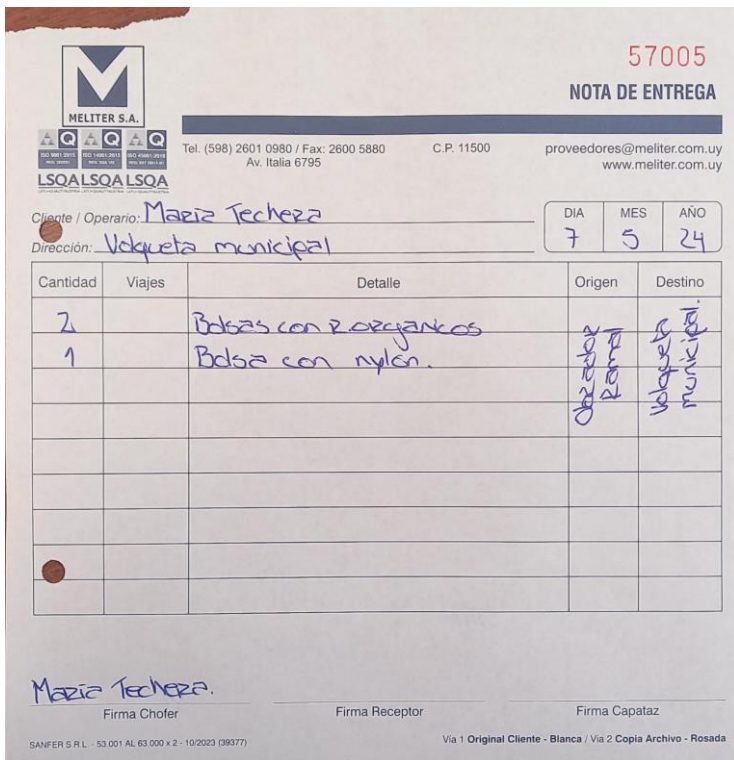 57005
NOTA DE ENTREGA
MELITER S.A.
LSQA LSQA LSQA
Tel. (598) 2601 0980 / Fax: 2600 5880
Av. Italia 6795
C.P. 11500
proveedores@meliter.com.uy
www.meliter.com.uy
Cliente / Operario: Maria Techera
Dirección: Volqueta municipal
DIA MES AÑO
7 5 24
Cantidad Viajes Detalle Origen Destino
2 Bolsas con R.organicos
1 Bolsa con nylon.
Obrador Ramal
Volqueta municipal.
Maria Techera.
Firma Chofer Firma Receptor Firma Capataz
SANFER S.R.L. - 53.001 AL 63.000 x 2 - 10/2023 (39377)
Vía 1 Original Cliente - Blanca / Via 2 Copia Archivo - Rosada